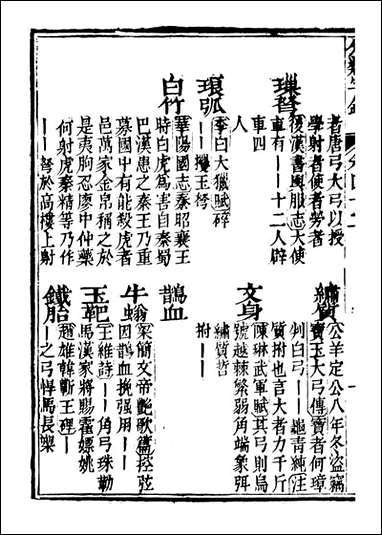 者唐弓大弓以授
學射者使者勞者
璅弩
後漢書輿服志大使
車有——十二人辟
車四
人
琅弧
李白大獵賦碎
——攫玉弩
白竹
華陽國志秦昭襄王
時白虎為害自秦蜀
巴漢患之秦王乃重
募國中有能殺虎者
邑萬家金帛稱之於
是夷朐忍廖中仲藥
何射虎秦精等乃作
——弩於高樓上射
繡質
公羊定公八年冬盜竊
寶玉大弓傳寶者何璋
判白弓——龜青純注
質拊也言大者力千斤
文身
陳琳武軍賦其弓則烏
號越棘繁弱角端象弭
繡質晢
拊——
鵲血
牛螉
梁簡文帝艷歌篇控弦
因鵲血挽强用——
玉靶
王維詩——角弓珠勒
馬漢家將賜霍嫖姚
鐵胎
趙雄韓蘄王碑—
—之弓悍馬長槊